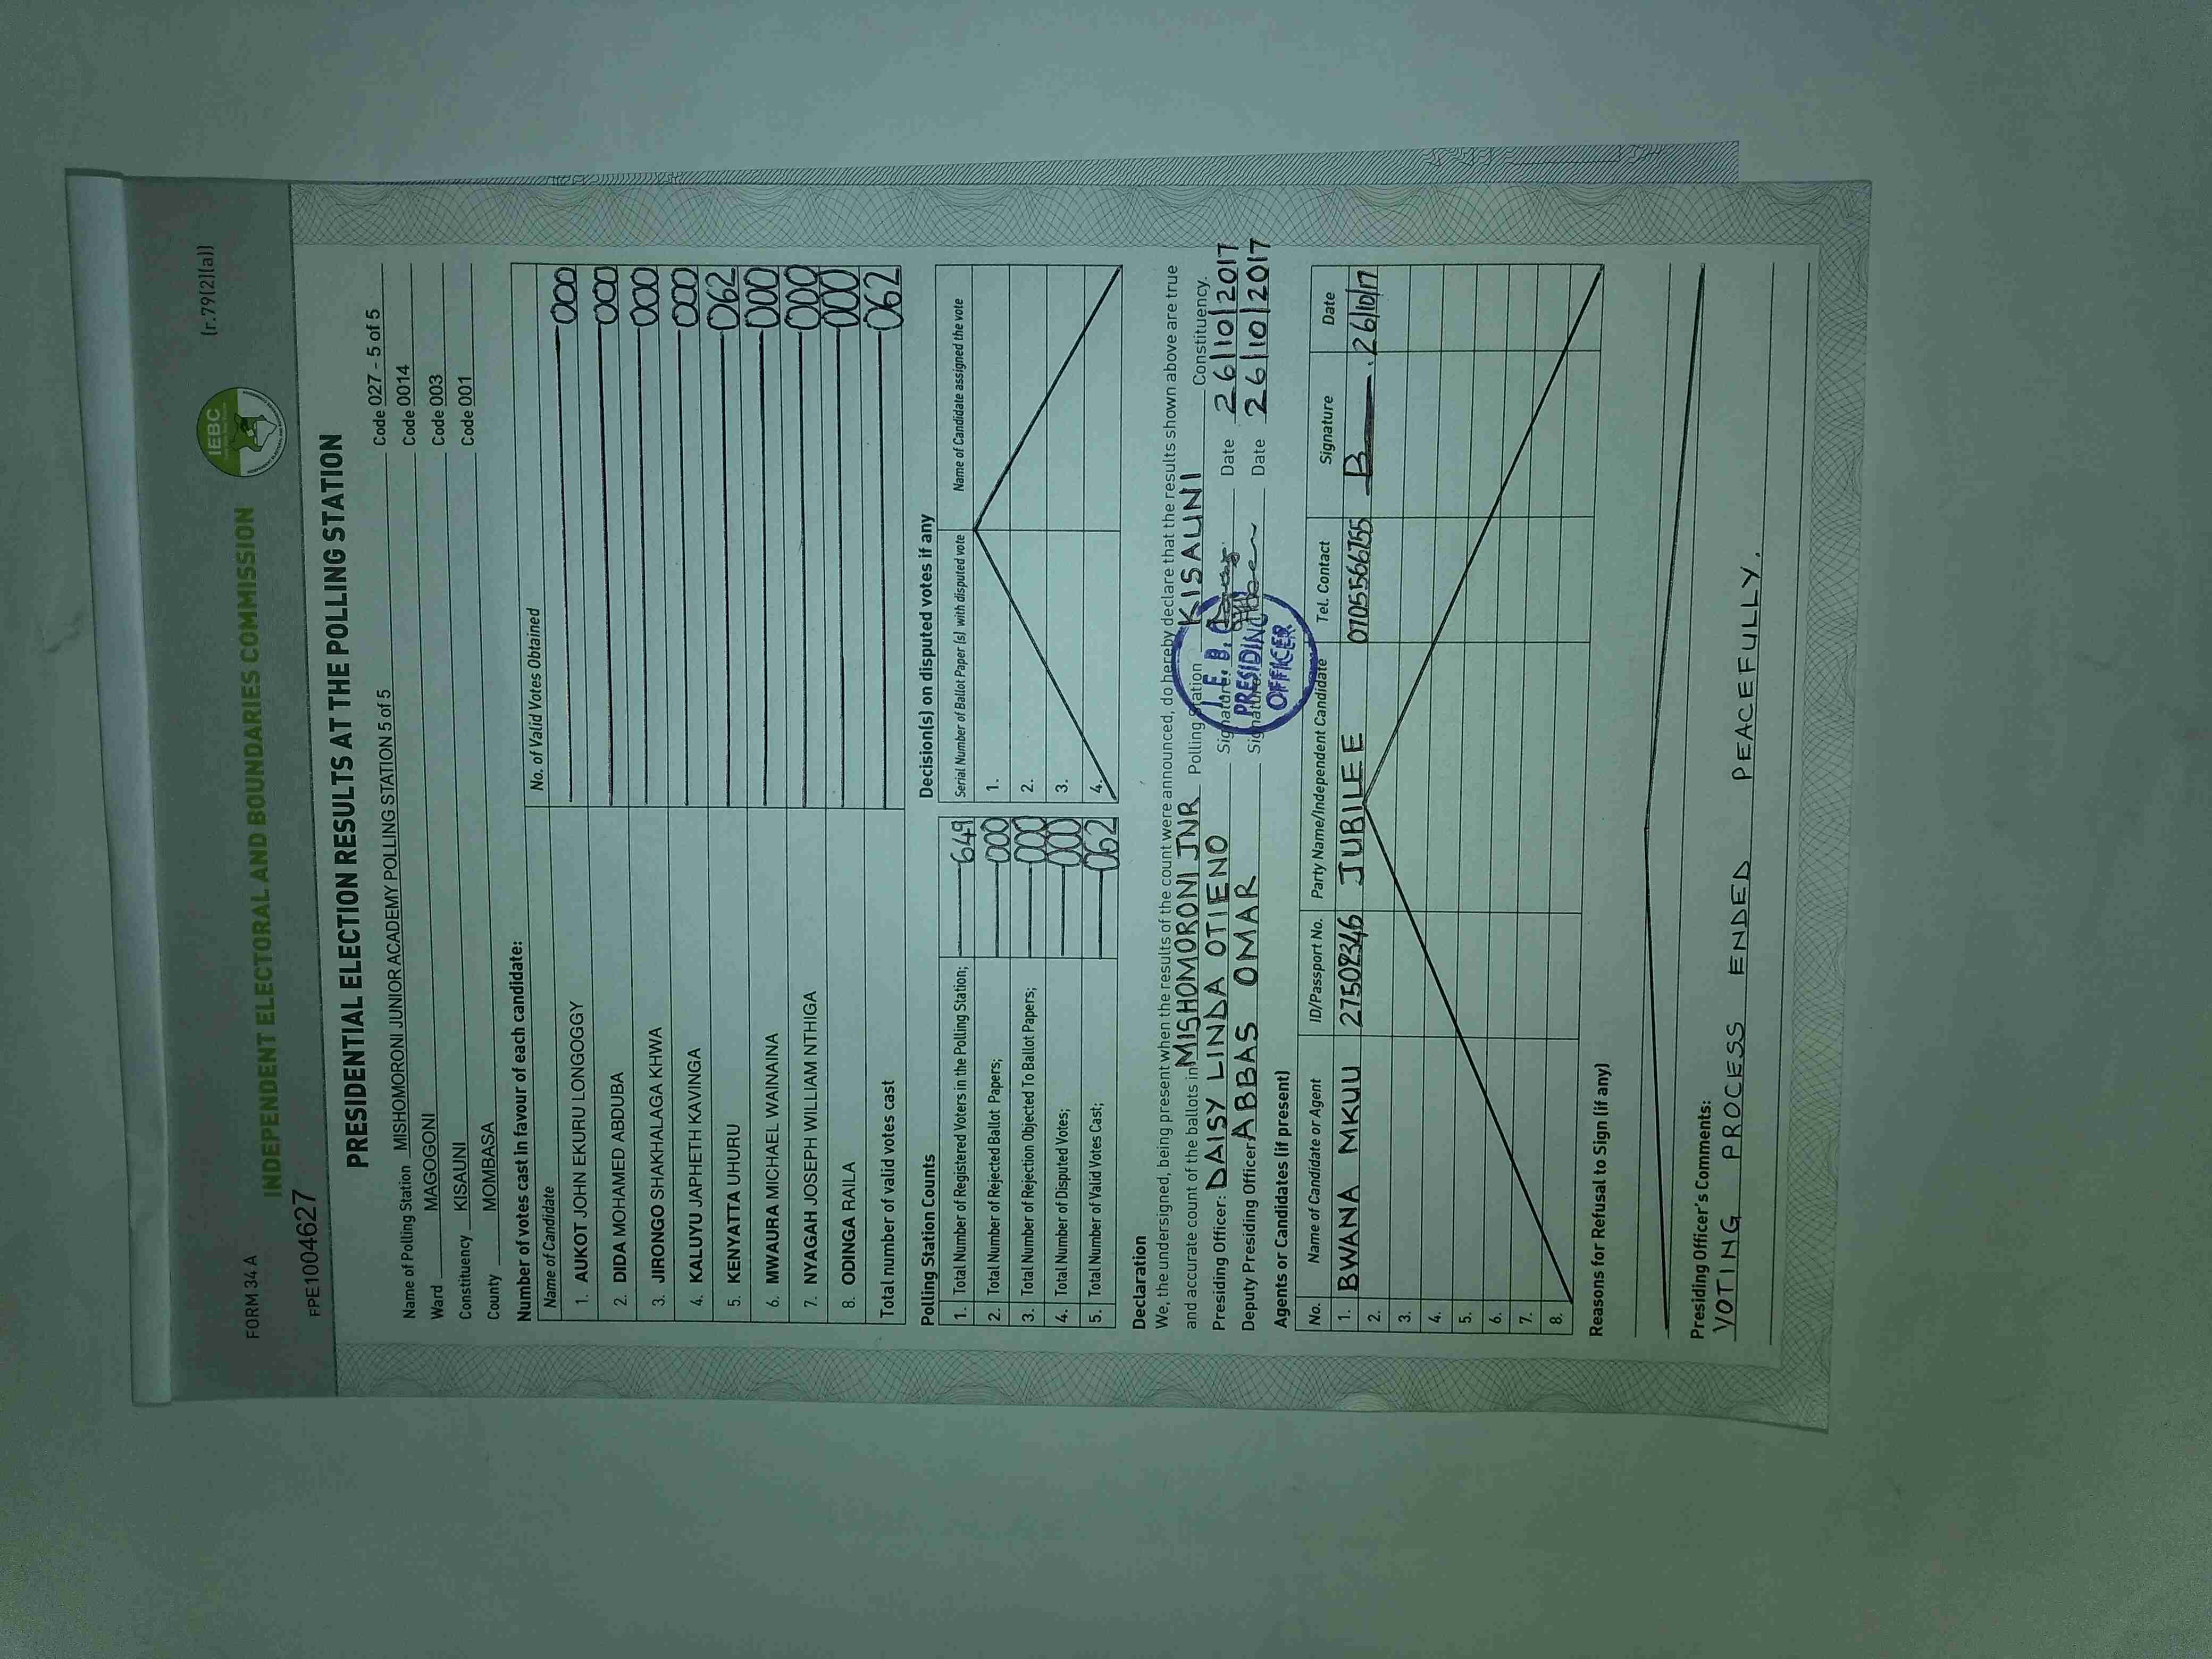 FORM 34 A
(r.79(2)(a))
IEBC
INDEPENDENT ELECTORAL AND BOUNDARIES COMMISSION
FPE1004627
PRESIDENTIAL ELECTION RESULTS AT THE POLLING STATION
Name of Polling Station MISHOMORONI JUNIOR ACADEMY POLLING STATION 5 of 5 Code 027 - 5 of 5
Ward MAGOGONI Code 0014
Constituency KISAUNI Code 003
County MOMBASA Code 001
Number of votes cast in favour of each candidate:
Name of Candidate No. of Valid Votes Obtained
1. AUKOT JOHN EKURU LONGOGGY 000
2. DIDA MOHAMED ABDUBA 000
3. JIRONGO SHAKHALAGA KHWA 000
4. KALUYU JAPHETH KAVINGA 000
5. KENYATTA UHURU 062
6. MWAURA MICHAEL WAINAINA 000
7. NYAGAH JOSEPH WILLIAM NTHIGA 000
8. ODINGA RAILA 000
Total number of valid votes cast 062
Polling Station Counts
1. Total Number of Registered Voters in the Polling Station; 649
2. Total Number of Rejected Ballot Papers; 000
3. Total Number of Rejection Objected To Ballot Papers; 000
4. Total Number of Disputed Votes; 000
5. Total Number of Valid Votes Cast; 062
Decision(s) on disputed votes if any
Serial Number of Ballot Paper (s) with disputed vote Name of Candidate assigned the vote
1.
2.
3.
4.
Declaration
We, the undersigned, being present when the results of the count were announced, do hereby declare that the results shown above are true
and accurate count of the ballots in MISHOMORONI JNR Polling Station KISAUNI Constituency.
Presiding Officer: DAISY LINDA OTIENO Signature: Date 26/10/2017
Deputy Presiding Officer: ABBAS OMAR Signature: Date 26/10/2017
I.E.B.C
PRESIDING
OFFICER
Agents or Candidates (if present)
No. Name of Candidate or Agent ID/Passport No. Party Name/Independent Candidate Tel. Contact Signature Date
1. BWANA MKUU 27502346 JUBILEE 0705566755 B 26/10/17
2.
3.
4.
5.
6.
7.
8.
Reasons for Refusal to Sign (if any)
Presiding Officer's Comments:
VOTING PROCESS ENDED PEACEFULLY.